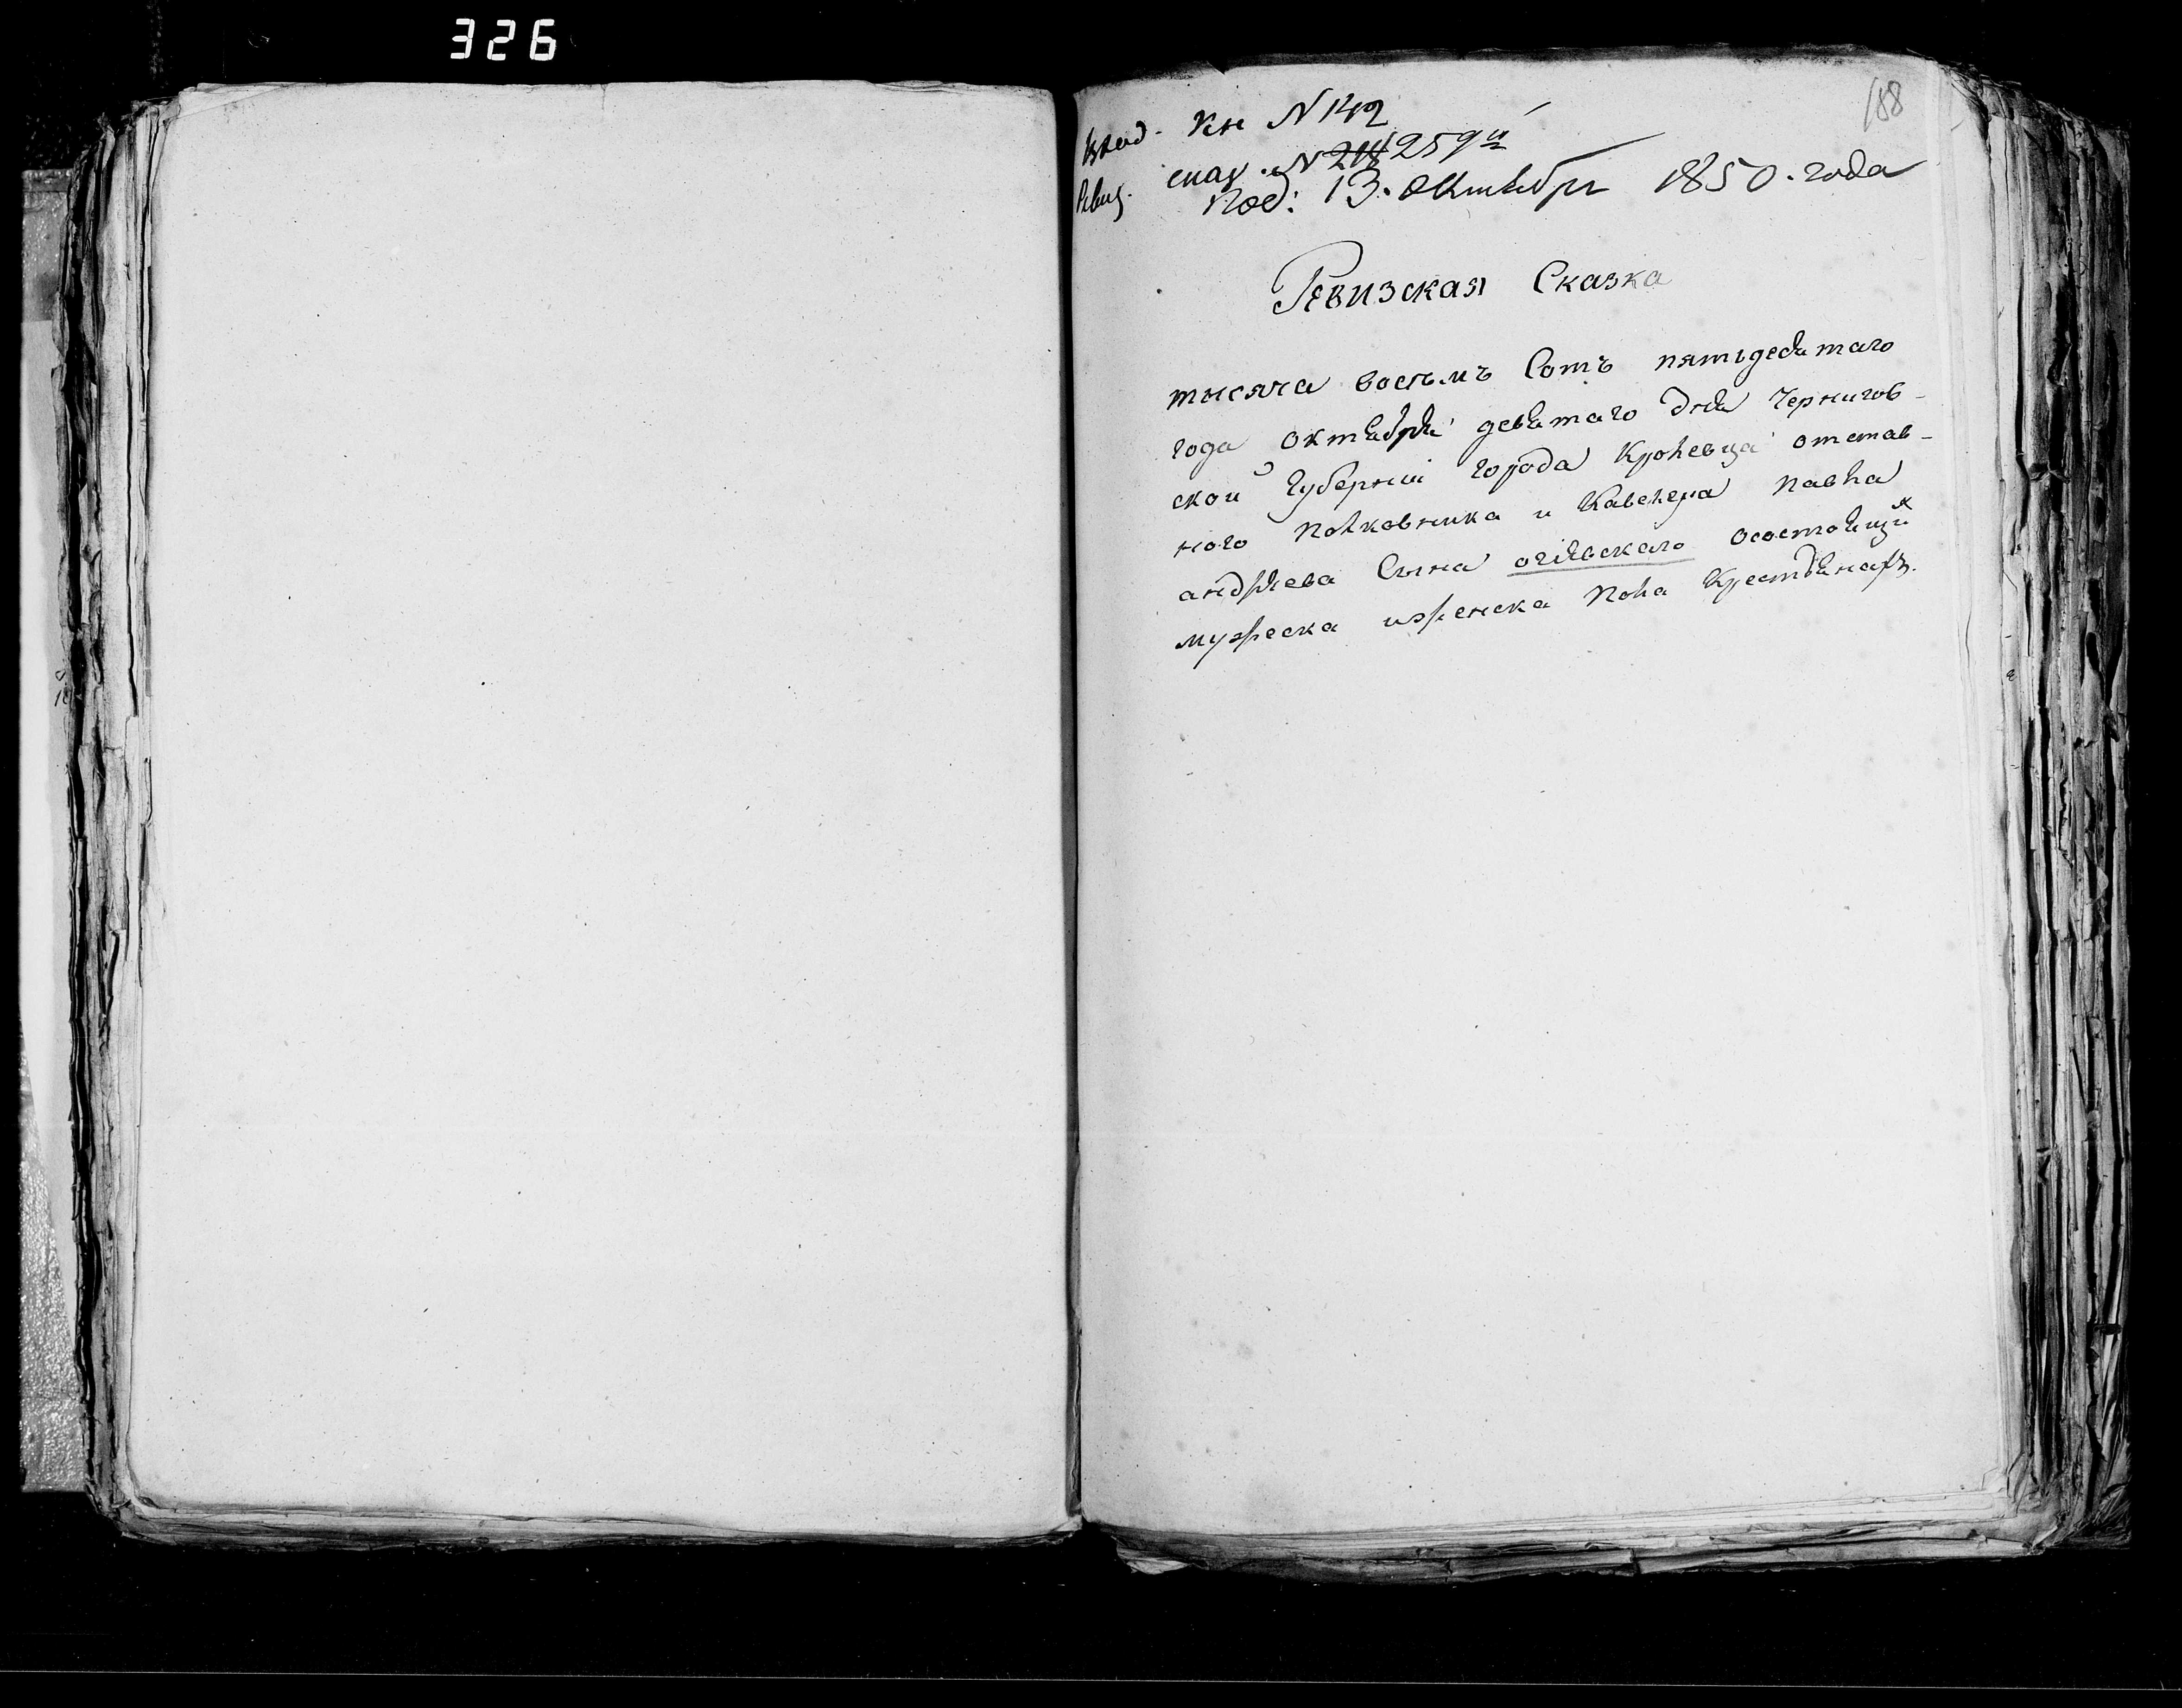 326
188
Вход. Кн N 142
Ревиз. сказ. N 218 259й
Под: 13. октября 1850. года
Ревизская Сказка
тысяча восемъ Сотъ пятьдесятаго
года октября девятаго дня Чернигов-
ской Губерніи города Кролевца отстав-
ного полковника и Кавалера павла
андреева Сына огіевскаго осостоящих
мужеска иженска пола Крестьянахъ.